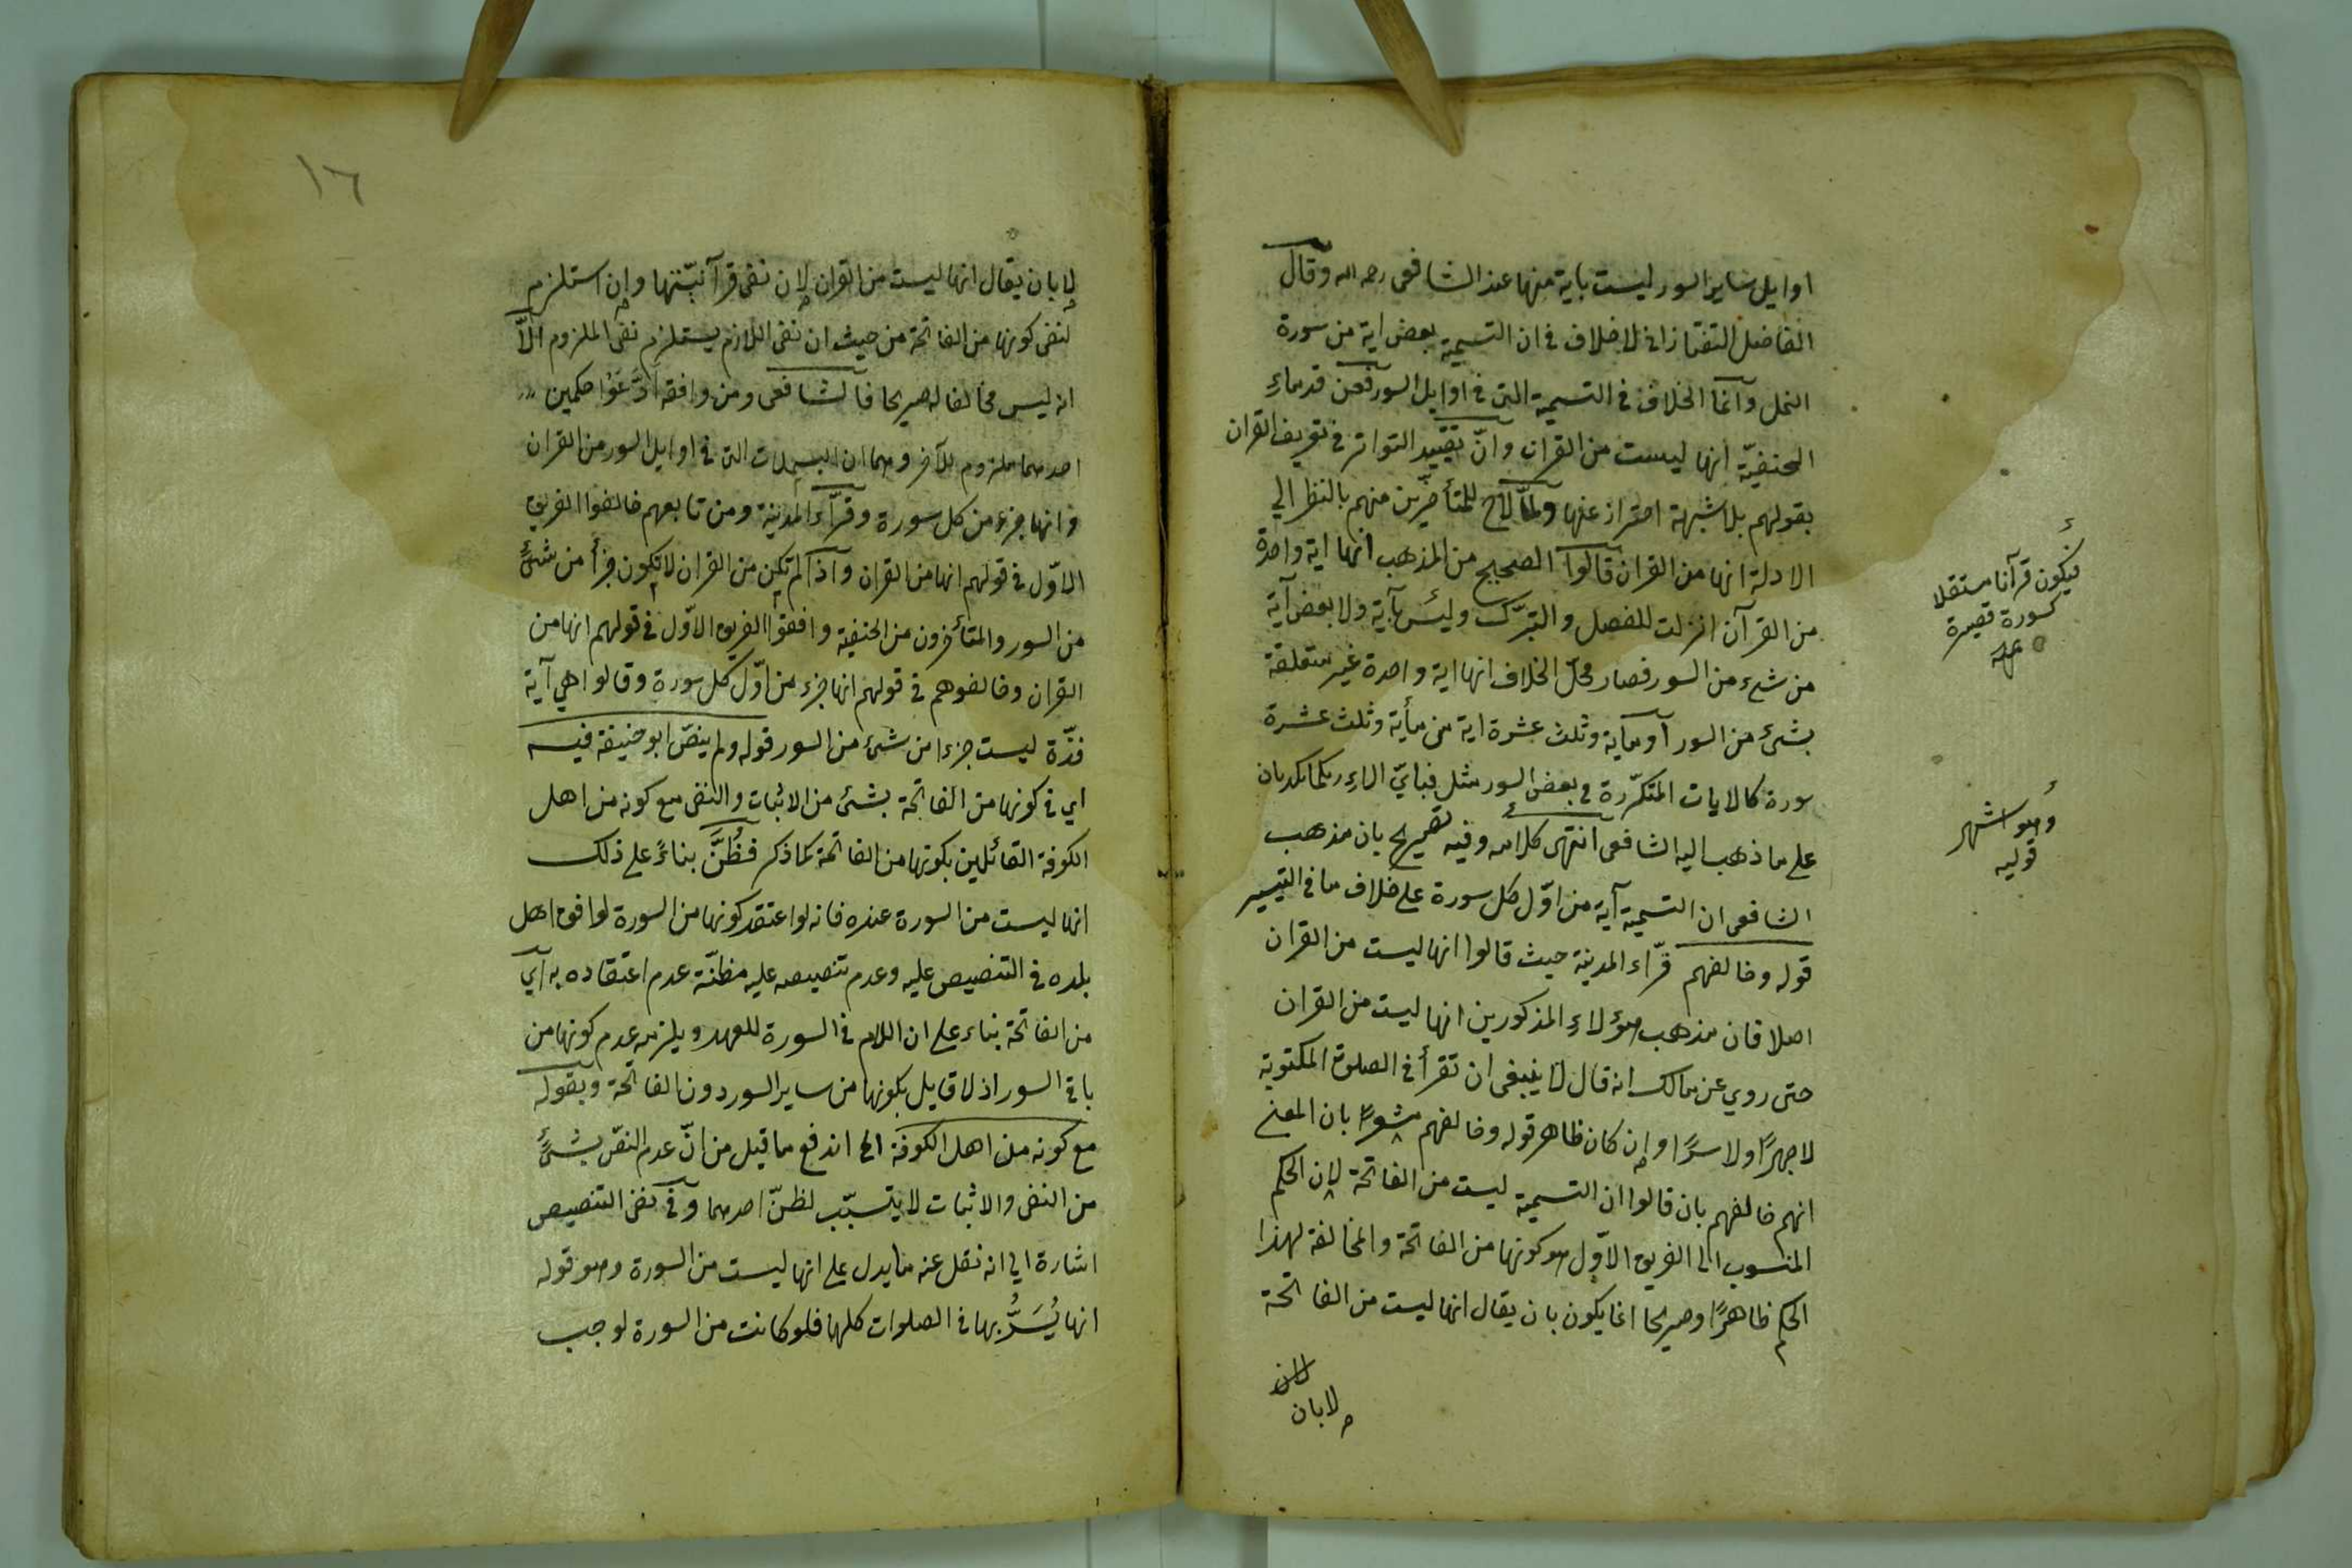 اوايل ساير السور ليست باية منها عند الشافعى رحمه الله وقال
الفاضل التفتازانى لا خلاف فى ان التسمية بعض اية من سورة
النمل وانما الخلاف فى التسمية التى فى اوايل السور فعن قدماء
الحنفيّة انها ليست من القران وانّ تقييد التواتر فى تعريف القران
بقولهم بلا شبهة احتراز عنها ولمّا لاح للمتأخّرين منهم بالنظر الي
الادلة انها من القران قالوا الصحيح من المذهب انها اية واحدة
من القرآن انزلت للفصل والتبرّك وليس بآية ولا بعض آية
من شىء من السور فصار محلّ الخلاف انها اية واحدة غير متعلقة
بشئ من السور او مأية وثلث عشرة اية من مأية وثلث عشرة
سورة كالايات المتكرّرة فى بعض السور مثل فبايّ الاء ربكما تكذبان
على ما ذهب اليه الشافعى انتهى كلامه وفيه تصريح بان مذهب
الشافعى ان التسمية آية من اوّل كل سورة على خلاف ما فى التيسير
قوله وخالفهم قرّاء المدينة حيث قالوا انها ليست من القران
اصلا فان مذهب هؤلاء المذكورين انها ليست من القران
حتى روي عن مالك انه قال لا ينبغى ان تقرأ فى الصلوة المكتوبة
لا جهرًا ولا سرًا وإن كان ظاهر قوله وخالفهم مشعرًا بان المعنى
انهم خالفهم بان قالوا ان التسمية ليست من الفاتحة لان الحكم
المنسوب الى الفريق الاوّل هو كونها من الفاتحة والمخالفة لهذا
الحكم ظاهرًا وصريحا انما يكون بان يقال انها ليست من الفاتحة
لابان
فيكون قرآنا مستقلا
كسورة قصيرة
وهو اشهر
قوليه
١٦
لا بان يقال انها ليست من القران لان نفى قرآنيّتها وإن استلزم
لنفى كونها من الفاتحة من حيث ان نفى اللازم يستلزم نفى الملزوم الّا
انه ليس مخالفا له صريحا فالشافعى ومن وافقه ادَّعَوْا حكمين
احدهما ملزوم للآخر وهما ان البسملات التى فى اوايل السور من القران
وانها جزء من كل سورة وقرّاء المدينة ومن تابعهم خالفوا الفريق
الاوّل فى قولهم انها من القران واذا لم تكن من القران لا تكون جزأ من شئ
من السور والمتأخرون من الحنفية وافقوا الفريق الاوّل فى قولهم انها من
القران وخالفوهم فى قولهم انها جزء من اوّل كل سورة وقالوا هي آية
فذّة ليست جزءا من شئ من السور قوله ولم ينصّ ابو حنيفة فيه
اي فى كونها من الفاتحة بشئ من الاثبات والنفى مع كونه من اهل
الكوفة القائلين بكونها من الفاتحة كما ذكر فظُنَّ بناءً على ذلك
انها ليست من السورة عنده فانه لو اعتقد كونها من السورة لوافق اهل
بلده فى التنصيص عليه وعدم تنصيصه عليه مظنّة عدم اعتقاده به اي
من الفاتحة بناء على ان اللام فى السورة للعهد ويلزمه عدم كونها من
باقى السور اذ لا قايل بكونها من ساير السور دون الفاتحة وبقوله
مع كونه من اهل الكوفة الى اندفع ما قيل من انّ عدم النصّ بشئ
من النفى والاثبات لا يتسبّب لظنّ احدهما وفى نفى التنصيص
اشارة الى انه نقل عنه ما يدل على انها ليست من السورة وهو قوله
انها يُسَرُّ بها فى الصلوات كلها فلو كانت من السورة لوجب